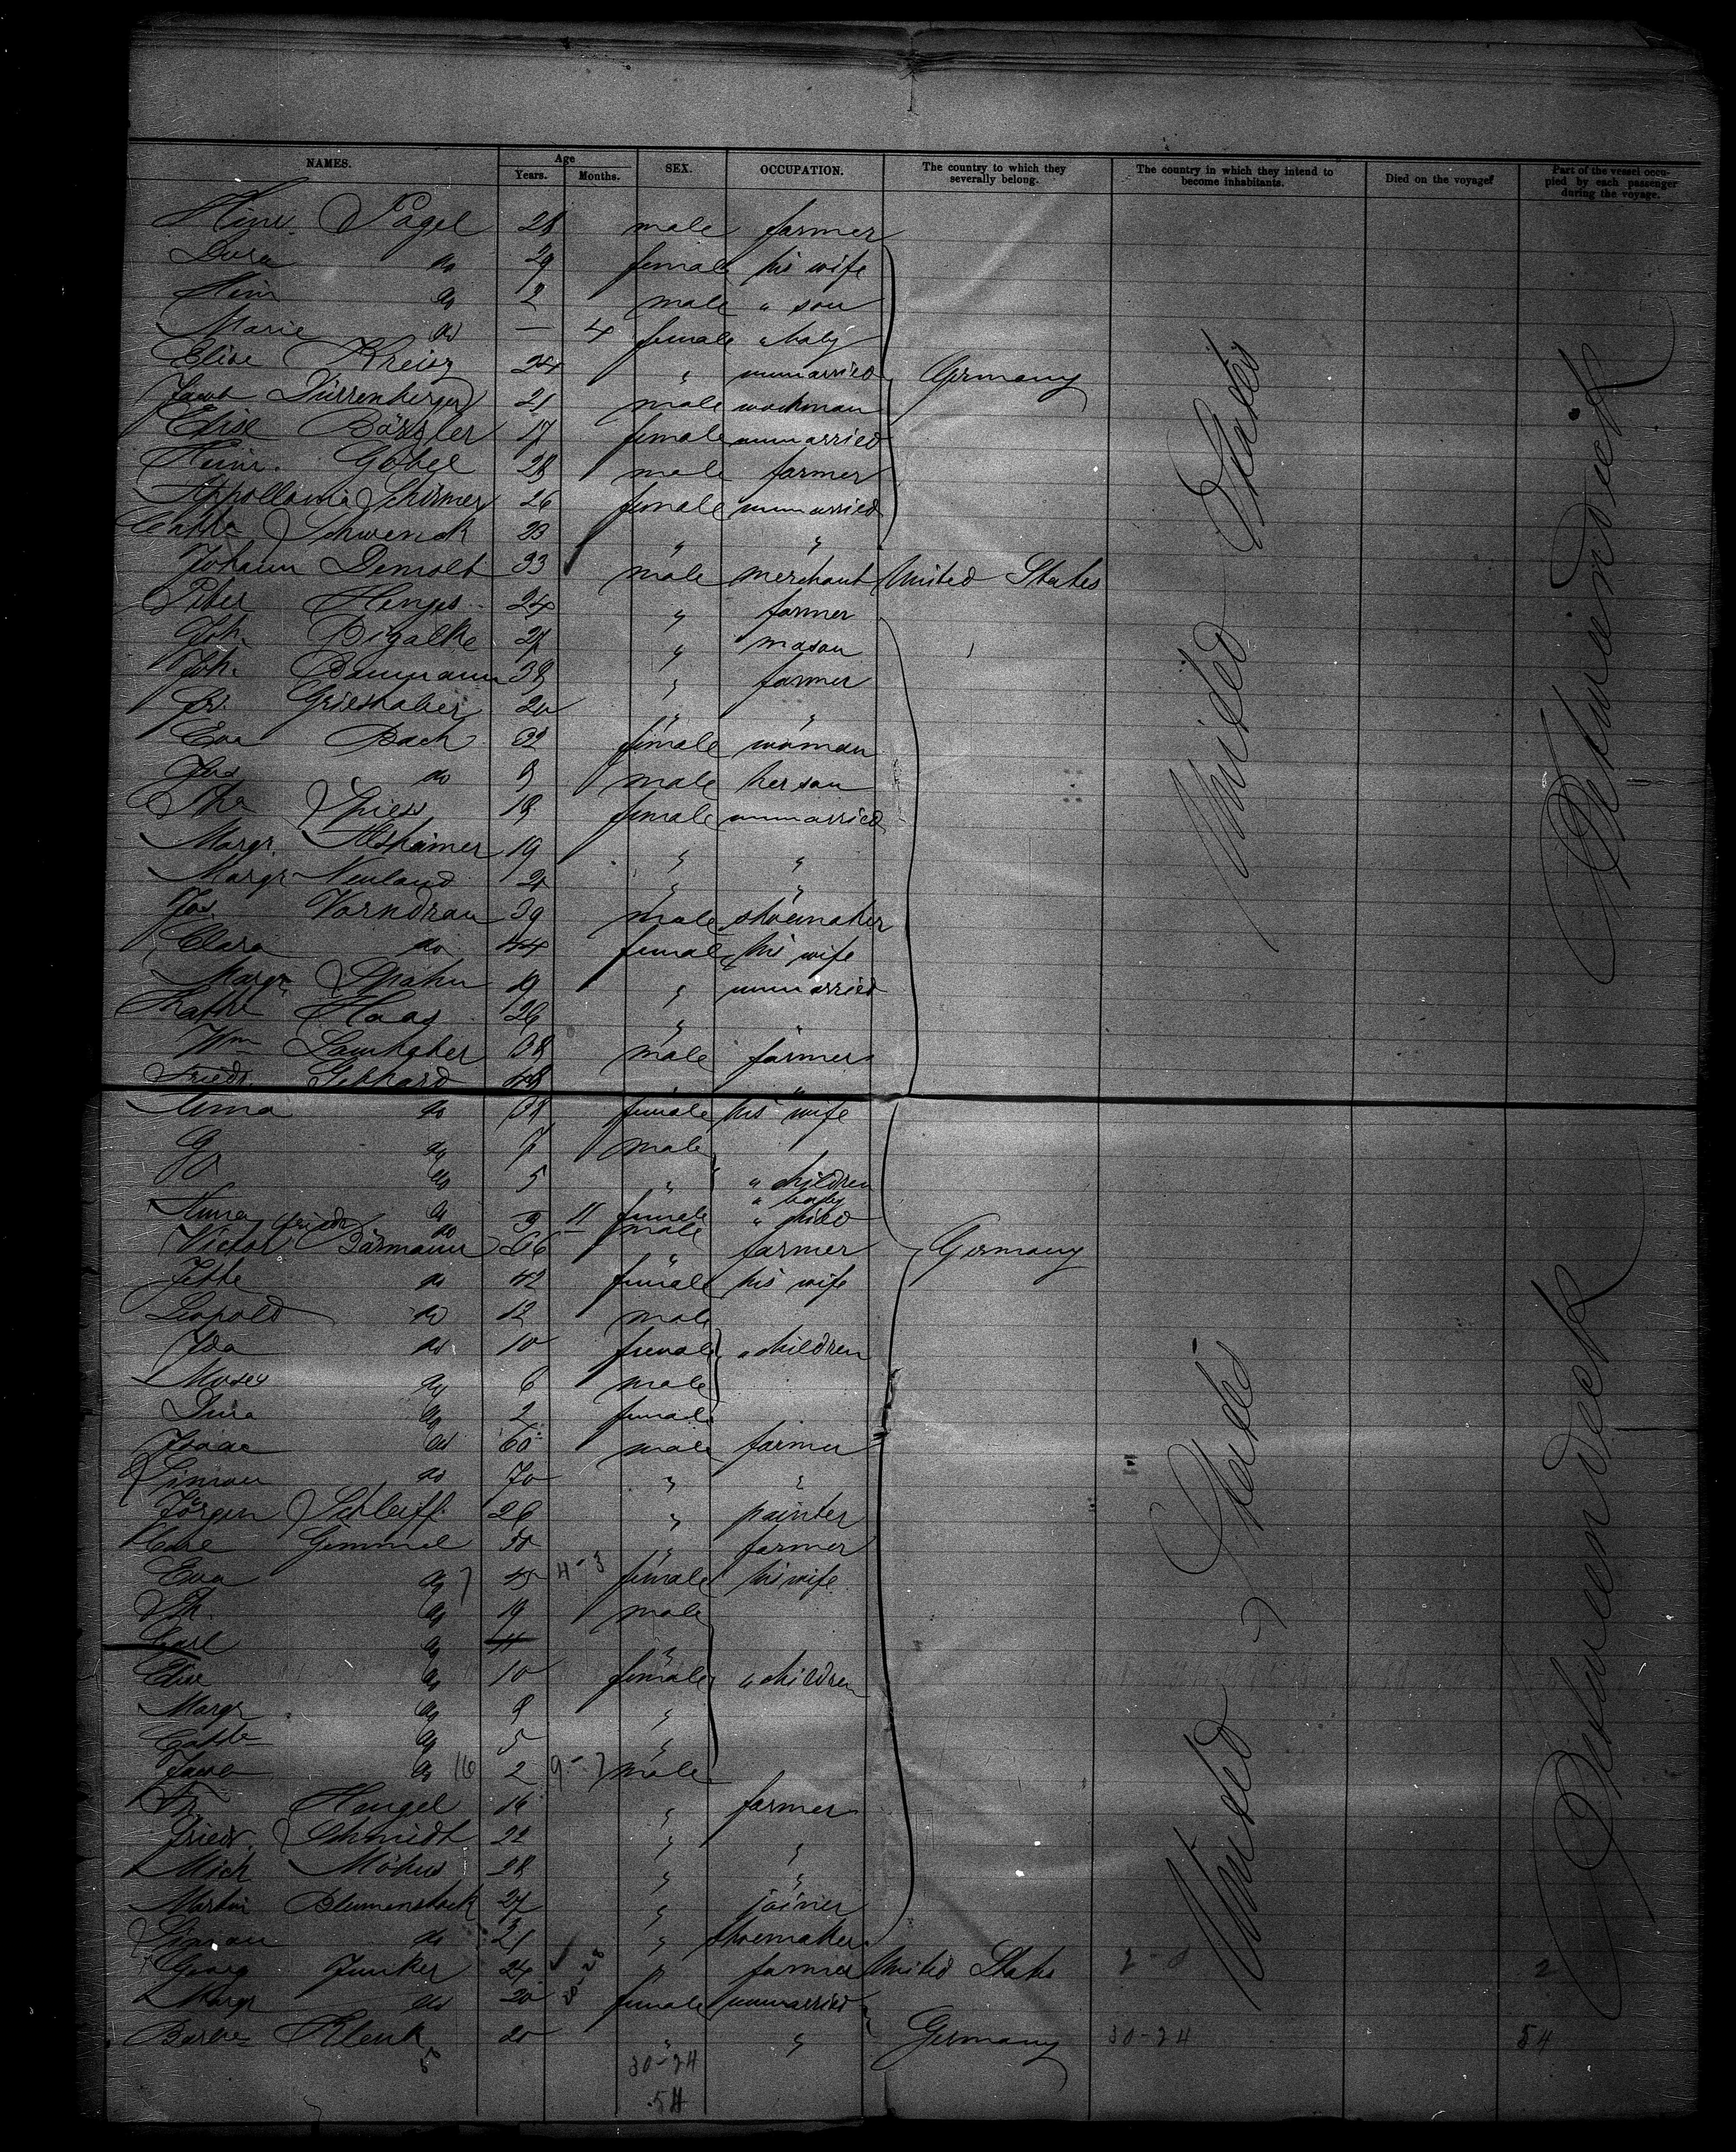 NAMES. Age Years. Months. SEX. OCCUPATION. The country to which they severally belong. The country in which they intend to become inhabitants. Died on the voyage. Part of the vessel occupied by each passenger during the voyage.
Heinr. Pagel 28 male farmer
Dora do 29 female his wife
Heinr do 2 male " son
Marie do — 4 female " baby
Elise 24 " unmarried Germany
Jacob Dürrenberger 21 male workman
Elise Bässler 17 female unmarried
Heinr. Göbel 28 male farmer
Appollonia Schirmer 26 female unmarried
Cathe Schwenck 23 " "
Johann Demolt 33 male merchant United States
Peter Henges 24 " farmer
Joh. Bigalke 27 " mason
Joh. Baumann 38 " farmer
Fr. Grieshaber 20 " "
Eva Bach 32 female woman
Jos do 9 male her son
Spies 18 female unmarried
Margr. Altshaimer 19 " "
Margr Neuland 21 " "
Jos. Vorndran 39 male shoemaker
Clara do 44 female his wife
Margr Spahn 19 " unmarried
Kathe Haag 26 "
Wm 38 male farmer
Friedr. Gebhard 48 " "
Anna do 38 female his wife
G do 7 male
do 5 " " children
" baby
Anna do 9 11 female " child
Friedr do male
Victor Bärmann 56 " farmer Germany
Jette do 42 female his wife
Leopold do 12 male
Ida do 10 female " children
Moses do 6 male
Dina do 2 female
Isaac do 60 male farmer
Simon do 70 " "
Jörgen Schleiff 26 " painter
Carl Gimmel 50 " farmer
Eva do 45 4-3 female his wife
Ph. do 19 male
Carl do 11 "
Elise do 10 female " children
Margr do 9 "
Cathe do 5 "
Jacob do 16 2 9-7 male
Fr. Hengel 16 " farmer
Friedr. Schmidt 22 " "
Mich Möhus 28 " "
Martin Blumenstock 27 " joiner
Simon do 21 " shoemaker
Georg Junker 24 " farmer United States 2
Margr do 20 female unmarried
Barbe Klenk 20 " " Germany 30-24 54
30-24
54
United States
Betweendeck
United States
Betweendeck